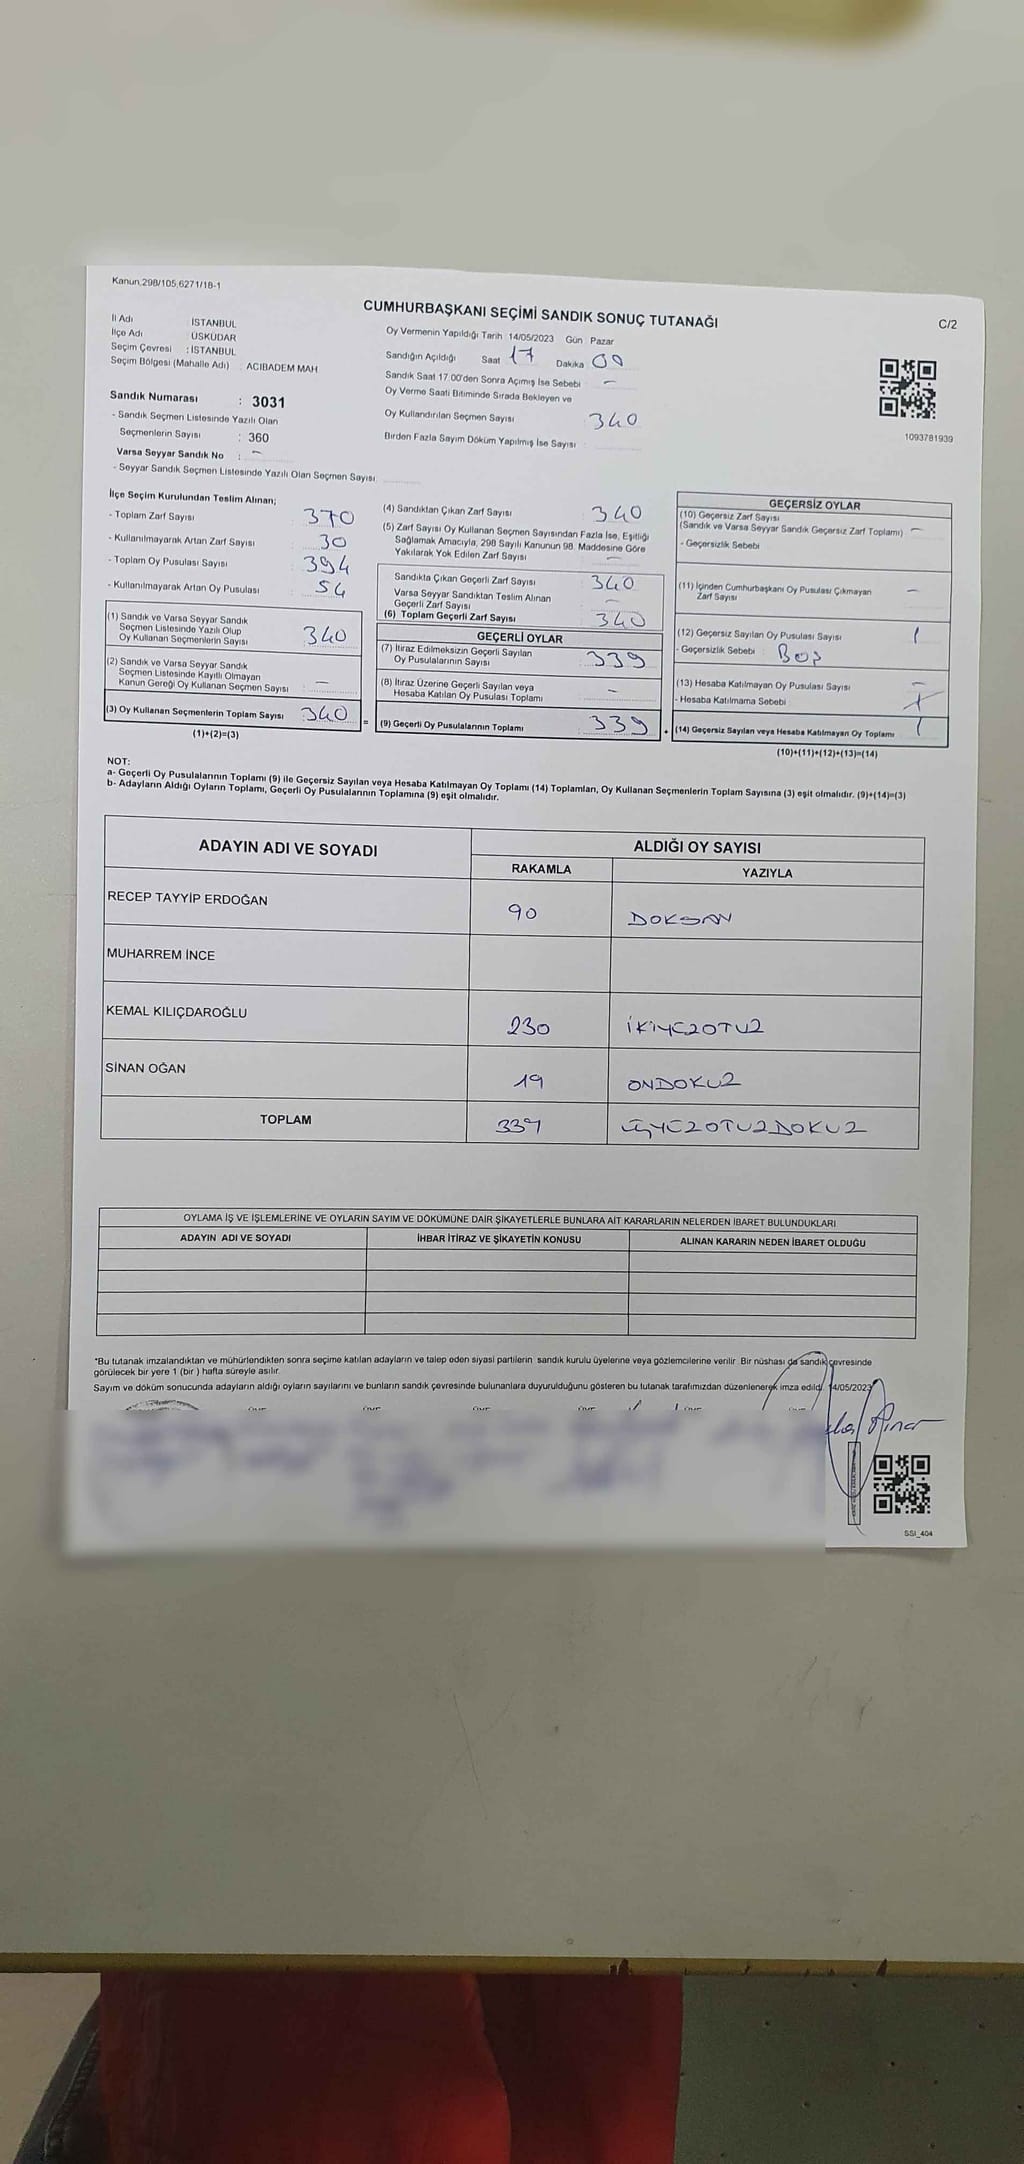 Kanun,298/105,6271/18-1
CUMHURBAŞKANI SEÇİMİ SANDIK SONUÇ TUTANAĞI
C/2
İl Adı İSTANBUL
İlçe Adı ÜSKÜDAR
Seçim Çevresi : İSTANBUL
Seçim Bölgesi (Mahalle Adı) : ACIBADEM MAH.
Sandık Numarası : 3031
- Sandık Seçmen Listesinde Yazılı Olan
Seçmenlerin Sayısı : 360
Varsa Seyyar Sandık No : -
- Seyyar Sandık Seçmen Listesinde Yazılı Olan Seçmen Sayısı
Oy Vermenin Yapıldığı Tarih 14/05/2023 Gün Pazar
Sandığın Açıldığı Saat 17 Dakika 00
Sandık Saat 17.00'den Sonra Açımış İse Sebebi -
Oy Verme Saati Bitiminde Sırada Bekleyen ve
Oy Kullandırılan Seçmen Sayısı 340
Birden Fazla Sayım Döküm Yapılmış İse Sayısı
1093781939
İlçe Seçim Kurulundan Teslim Alınan;
- Toplam Zarf Sayısı 370
- Kullanılmayarak Artan Zarf Sayısı 30
- Toplam Oy Pusulası Sayısı 394
- Kullanılmayarak Artan Oy Pusulası 54
(1) Sandık ve Varsa Seyyar Sandık
Seçmen Listesinde Yazılı Olup
Oy Kullanan Seçmenlerin Sayısı 340
(2) Sandık ve Varsa Seyyar Sandık
Seçmen Listesinde Kayıtlı Olmayan
Kanun Gereği Oy Kullanan Seçmen Sayısı -
(3) Oy Kullanan Seçmenlerin Toplam Sayısı 340 =
(1)+(2)=(3)
(4) Sandıktan Çıkan Zarf Sayısı 340
(5) Zarf Sayısı Oy Kullanan Seçmen Sayısından Fazla İse, Eşitliği
Sağlamak Amacıyla, 298 Sayılı Kanunun 98. Maddesine Göre
Yakılarak Yok Edilen Zarf Sayısı -
Sandıkta Çıkan Geçerli Zarf Sayısı 340
Varsa Seyyar Sandıktan Teslim Alınan
Geçerli Zarf Sayısı -
(6) Toplam Geçerli Zarf Sayısı 340
GEÇERLİ OYLAR
(7) İtiraz Edilmeksizin Geçerli Sayılan
Oy Pusulalarının Sayısı 339
(8) İtiraz Üzerine Geçerli Sayılan veya
Hesaba Katılan Oy Pusulası Toplamı -
(9) Geçerli Oy Pusulalarının Toplamı 339 +
GEÇERSİZ OYLAR
(10) Geçersiz Zarf Sayısı
(Sandık ve Varsa Seyyar Sandık Geçersiz Zarf Toplamı) -
- Geçersizlik Sebebi
(11) İçinden Cumhurbaşkanı Oy Pusulası Çıkmayan
Zarf Sayısı -
(12) Geçersiz Sayılan Oy Pusulası Sayısı 1
- Geçersizlik Sebebi : Boş
(13) Hesaba Katılmayan Oy Pusulası Sayısı -
- Hesaba Katılmama Sebebi
(14) Geçersiz Sayılan veya Hesaba Katılmayan Oy Toplamı 1
(10)+(11)+(12)+(13)=(14)
NOT:
a- Geçerli Oy Pusulalarının Toplamı (9) ile Geçersiz Sayılan veya Hesaba Katılmayan Oy Toplamı (14) Toplamları, Oy Kullanan Seçmenlerin Toplam Sayısına (3) eşit olmalıdır. (9)+(14)=(3)
b- Adayların Aldığı Oyların Toplamı, Geçerli Oy Pusulalarının Toplamına (9) eşit olmalıdır.
ADAYIN ADI VE SOYADI
ALDIĞI OY SAYISI
RAKAMLA YAZIYLA
RECEP TAYYİP ERDOĞAN 90 DOKSAN
MUHARREM İNCE
KEMAL KILIÇDAROĞLU 230 İKİYÜZOTUZ
SİNAN OĞAN 19 ONDOKUZ
TOPLAM 339 ÜÇYÜZOTUZDOKUZ
OYLAMA İŞ VE İŞLEMLERİNE VE OYLARIN SAYIM VE DÖKÜMÜNE DAİR ŞİKAYETLERLE BUNLARA AİT KARARLARIN NELERDEN İBARET BULUNDUKLARI
ADAYIN ADI VE SOYADI İHBAR İTİRAZ VE ŞİKAYETİN KONUSU ALINAN KARARIN NEDEN İBARET OLDUĞU
*Bu tutanak imzalandıktan ve mühürlendikten sonra seçime katılan adayların ve talep eden siyasi partilerin sandık kurulu üyelerine veya gözlemcilerine verilir. Bir nüshası da sandık çevresinde
görülecek bir yere 1 (bir) hafta süreyle asılır.
Sayım ve döküm sonucunda adayların aldığı oyların sayılarını ve bunların sandık çevresinde bulunanlara duyurulduğunu gösteren bu tutanak tarafımızdan düzenlenerek imza edildi. 14/05/2023
Pınar
SSI_404